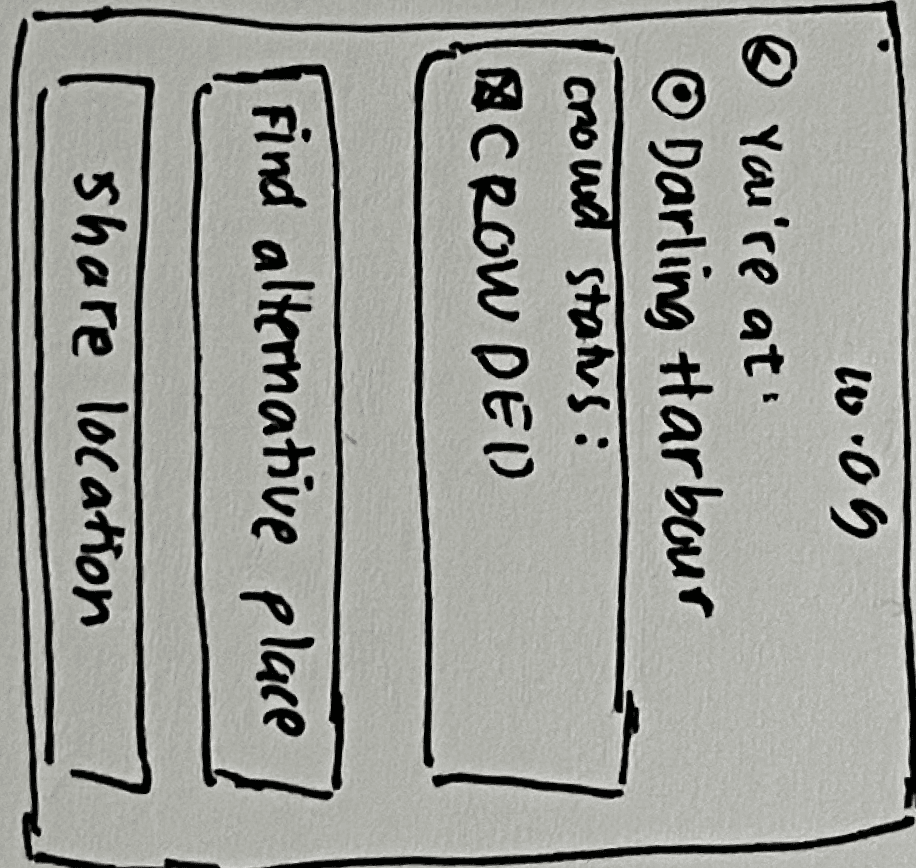 10.09
You're at:
Darling Harbour
crowd status:
CROWDED
Find alternative place
Share location